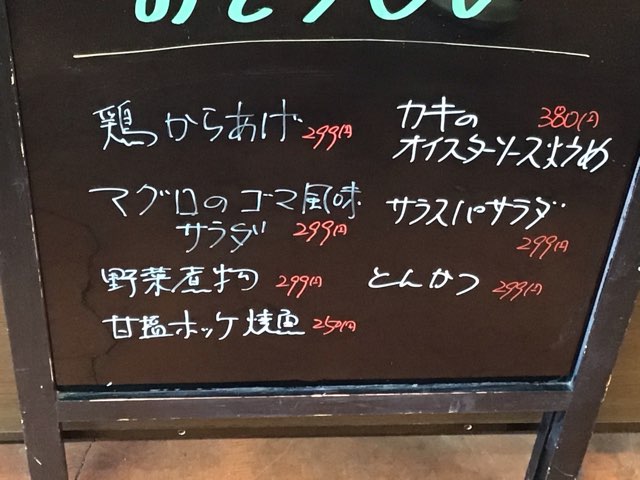 鶏からあげ 299円
マグロのゴマ風味
サラダ 299円
野菜煮物 299円
甘塩ホッケ焼魚 250円
カキの 380円
オイスターソース炒め
サラスパサラダ
299円
とんかつ 299円